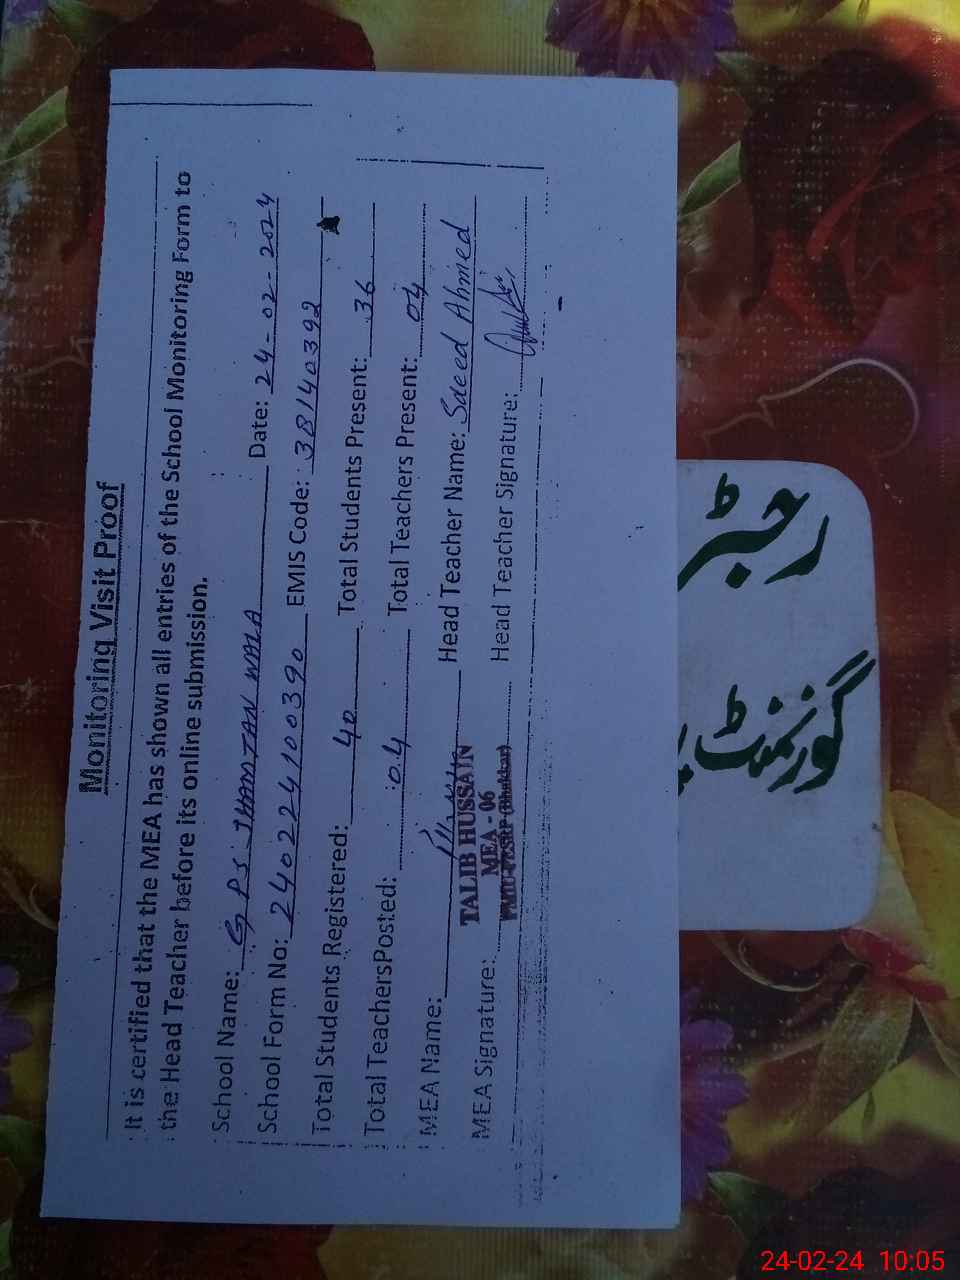 Monitoring Visit Proof
It is certified that the MEA has shown all entries of the School Monitoring Form to
the Head Teacher before its online submission.
School Name: G PS JHAMTAN WALA Date: 24-02-2024
School Form No: 240224100390 EMIS Code: 38140392
Total Students Registered: 40 Total Students Present: 36
Total TeachersPosted: 04 Total Teachers Present: 04
MEA Name: Head Teacher Name: Saeed Ahmed
TALIB HUSSAIN
MEA - 06
(Bhakkar)
MEA Signature: Head Teacher Signature:
رجسٹر
گورنمنٹ
24-02-24 10:05